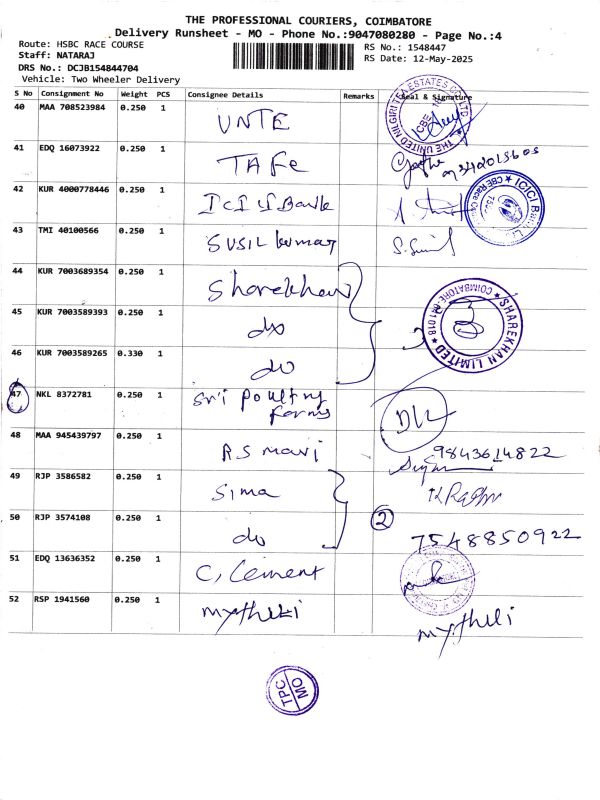 THE PROFESSIONAL COURIERS, COIMBATORE
Delivery Runsheet - MO - Phone No.:9047080280 - Page No.:4
Route: HSBC RACE COURSE
RS No.: 1548447
Staff: NATARAJ
RS Date: 12-May-2025
DRS No.: DCJB154844704
Vehicle: Two Wheeler Delivery
S No Consignment No Weight PCS Consignee Details Remarks Seal & Signature
40 MAA 708523984 0.250 1 UNTE
THE UNITED NILGIRI TEA ESTATES CO LTD CBE
41 EDQ 16073922 0.250 1 TAFe
42 KUR 4000778446 0.250 1 ICICI Bank
ICICI Bank CBE Race
43 TMI 40100566 0.250 1 SUSIL kumar
44 KUR 7003689354 0.250 1 Sharekhan
45 KUR 7003589393 0.250 1 do
SHAREKHAN LIMITED COIMBATORE-641018 3
46 KUR 7003589265 0.330 1 do
47 NKL 8372781 0.250 1 Sri poultry
farms
DL
48 MAA 945439797 0.250 1 RS mavi 9843614822
49 RJP 3586582 0.250 1 Sima
50 RJP 3574108 0.250 1 do 2 7548850922
51 EDQ 13636352 0.250 1 C, Cement
52 RSP 1941560 0.250 1 mytheli mytheli
TPC
MO